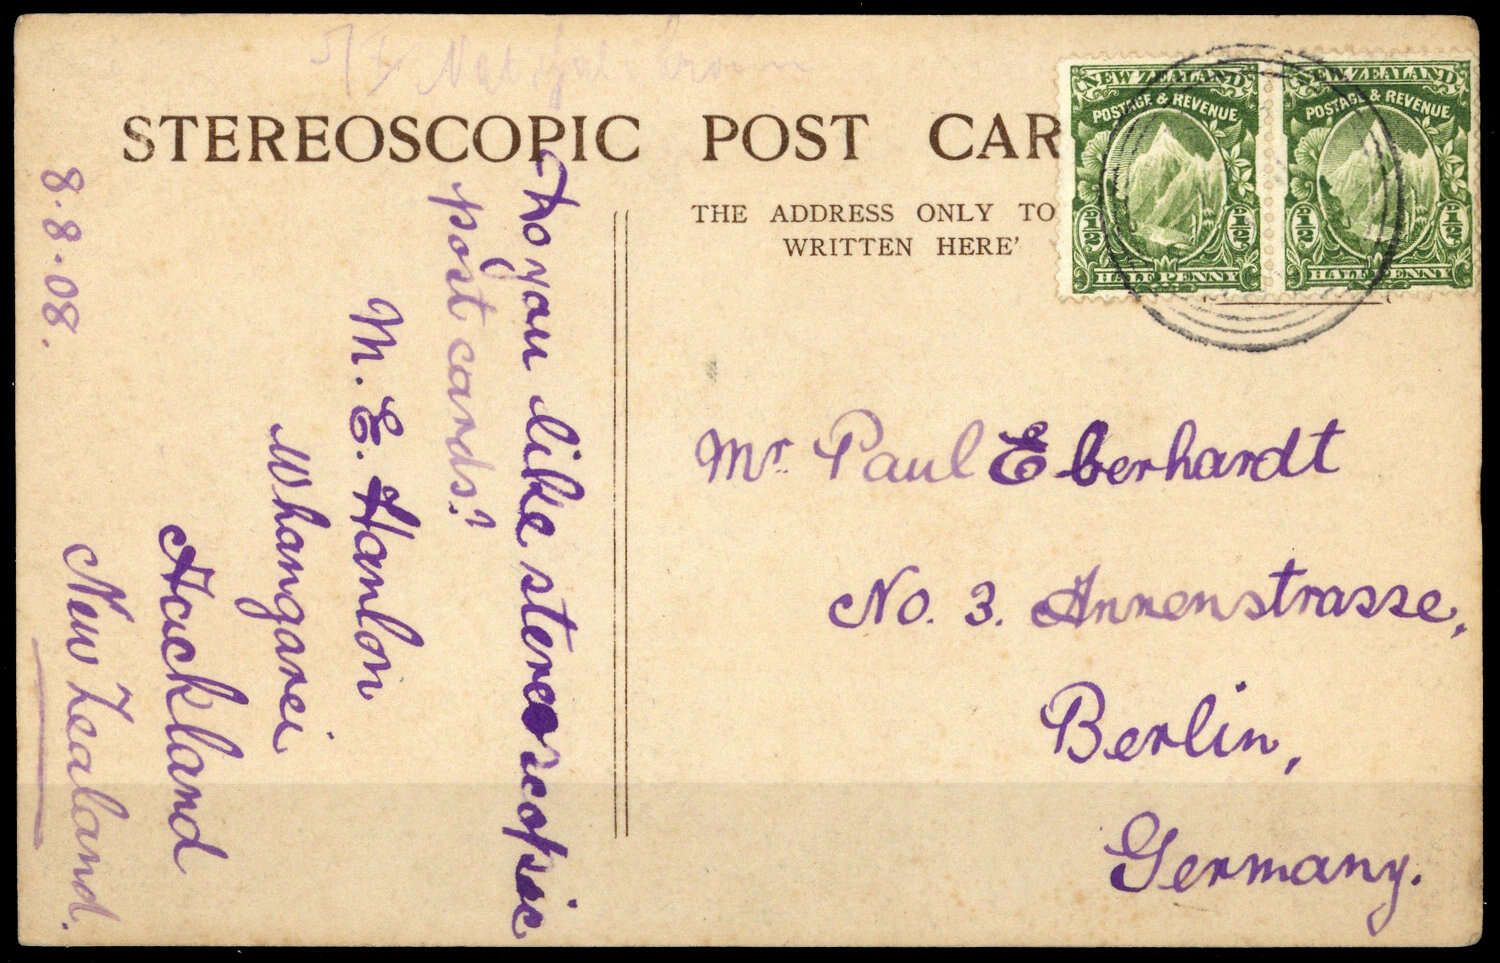 STEREOSCOPIC POST CAR
THE ADDRESS ONLY TO
WRITTEN HERE'
NEW ZEALAND
POSTAGE & REVENUE
1/2 1/2
HALF PENNY
NEW ZEALAND
POSTAGE & REVENUE
1/2 1/2
HALF PENNY
Do you like stereoscopic
post cards?
M. E. Hanlon
Whangarei
Auckland
New Zealand.
8.8.08.
Mr. Paul Eberhardt
No. 3. Annenstrasse,
Berlin,
Germany.